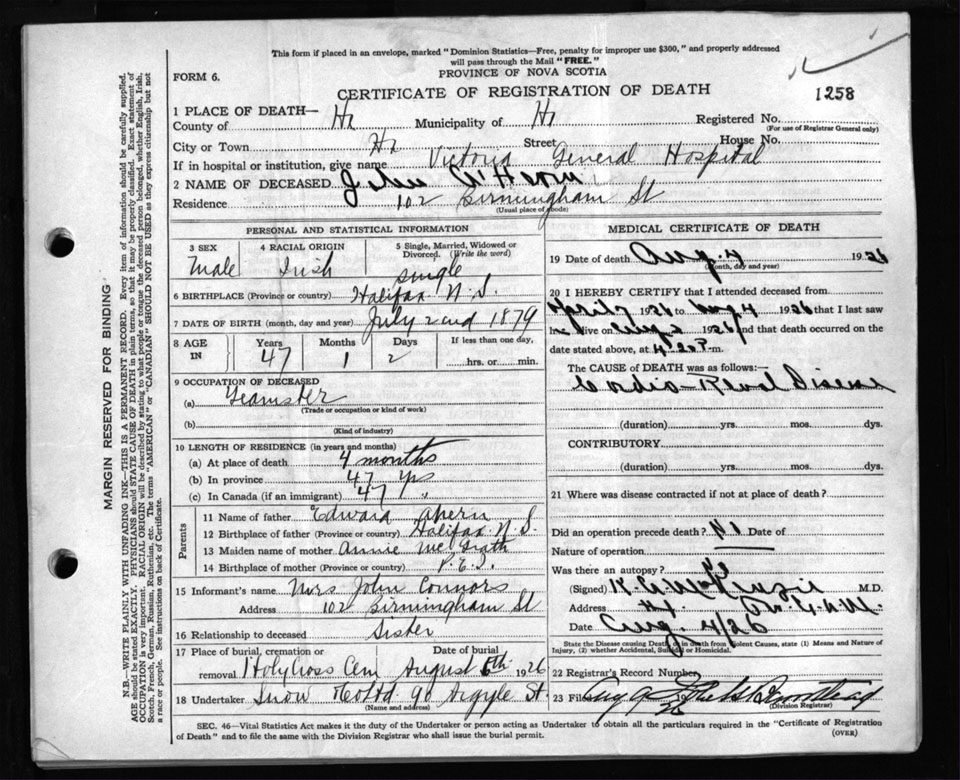 This form if placed in an envelope, marked "Dominion Statistics—Free, penalty for improper use $300," and properly addressed
will pass through the Mail "FREE."
PROVINCE OF NOVA SCOTIA
FORM 6.
CERTIFICATE OF REGISTRATION OF DEATH
1258
1 PLACE OF DEATH—
County of Hx Municipality of Hx Registered No.
(For use of Registrar General only)
City or Town Hx Street House No.
If in hospital or institution, give name Victoria General Hospital
2 NAME OF DECEASED John A'Hern
Residence 102 Birmingham St
(Usual place of abode)
PERSONAL AND STATISTICAL INFORMATION
3 SEX 4 RACIAL ORIGIN 5 Single, Married, Widowed or Divorced. (Write the word)
Male Irish single
6 BIRTHPLACE (Province or country) Halifax N.S.
7 DATE OF BIRTH (month, day and year) July 2nd 1879
8 AGE IN Years Months Days If less than one day,
47 1 2 hrs. or min.
9 OCCUPATION OF DECEASED
(a) Teamster
(Trade or occupation or kind of work)
(b)
(Kind of industry)
10 LENGTH OF RESIDENCE (in years and months)
(a) At place of death 4 months
(b) In province 47 yrs
(c) In Canada (if an immigrant) 47 "
Parents
11 Name of father Edward Ahern
12 Birthplace of father (Province or country) Halifax N S
13 Maiden name of mother Annie McGrath
14 Birthplace of mother P.E.I.
15 Informant's name Mrs John Connors
Address 102 Birmingham St
16 Relationship to deceased Sister
17 Place of burial, cremation or removal Date of burial
Holy Cross Cem August 6th 1926
18 Undertaker Snow & Co Ltd 90 Argyle St.
(Name and address)
MEDICAL CERTIFICATE OF DEATH
19 Date of death Aug. 4 1926
(Month, day and year)
20 I HEREBY CERTIFY that I attended deceased from
April 7 1926 to Aug 4 1926 that I last saw
him alive on Aug 2 1926 and that death occurred on the
date stated above, at 4.20 P. m.
The CAUSE OF DEATH was as follows:
Cardio-Renal Disease
(duration) yrs. mos. dys.
CONTRIBUTORY
(duration) yrs. mos. dys.
21 Where was disease contracted if not at place of death?
Did an operation precede death? Date of
Nature of operation
Was there an autopsy?
(Signed) M.D.
Address
Date Aug. 4/26
State the Disease causing Death, or in death from Violent Causes, state (1) Means and Nature of
Injury, (2) whether Accidental, Suicidal or Homicidal.
22 Registrar's Record Number
23 Filed Aug 1926
(Division Registrar)
SEC. 46—Vital Statistics Act makes it the duty of the Undertaker or person acting as Undertaker to obtain all the particulars required in the "Certificate of Registration
of Death" and to file the same with the Division Registrar who shall issue the burial permit.
(OVER)
MARGIN RESERVED FOR BINDING
N.B.—WRITE PLAINLY WITH UNFADING INK—THIS IS A PERMANENT RECORD. Every item of information should be carefully supplied.
AGE should be stated EXACTLY. PHYSICIANS should STATE CAUSE OF DEATH in plain terms, so that it may be properly classified. Exact statement of
OCCUPATION is very important. RACIAL ORIGIN will be described by stating to what people or tongue the deceased person belonged, whether English, Irish,
Scotch, French, German, Russian, Ruthenian, etc. The terms "AMERICAN" or "CANADIAN" SHOULD NOT BE USED as they express citizenship but not
a race or people. See instructions on back of Certificate.